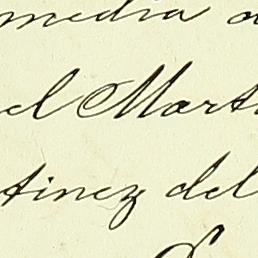 media
el Mart
tinez del